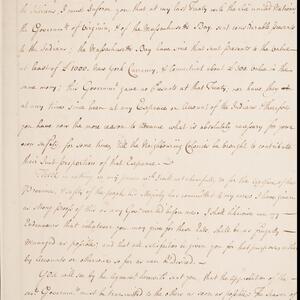 the Indians I must Inform you that at my last Treaty with the six united Nations
the Governm.t of Virginia, & of the Massachusetts Bay sent considerable Presents
to the Indians; the Massachusetts Bay have since that sent Presents to the value
at least of £1000, New York Currency, & Connecticut about £300 value in the
same way; this Governm.t gave no Presents at that Treaty, nor have they
at any time since been at any Expence on Account of the Indians & therefore
you have now the more reason to what is absolutely necessary for your
own safety for some time, till the Neighbouring Colonies be brought to contribute
their Just proportion of that Expence.
There is nothing in my power w.ch I shall not chearfully do for the of this
Province, & safety of the people his Majesty has committed to my care; I have given as
strong proofs of this as any Governour before me; I shall likewise use my
Endeavours that whatever you may give for these Ends shall be as frugally
Managed as possible, and that all satisfaction be given you for that purpose, either
by Accounts or otherwise so far as can be desired.
You will see by the Speech sent you that the of the
Governm.t must be transmitted to the others as soon as possible. The Season of